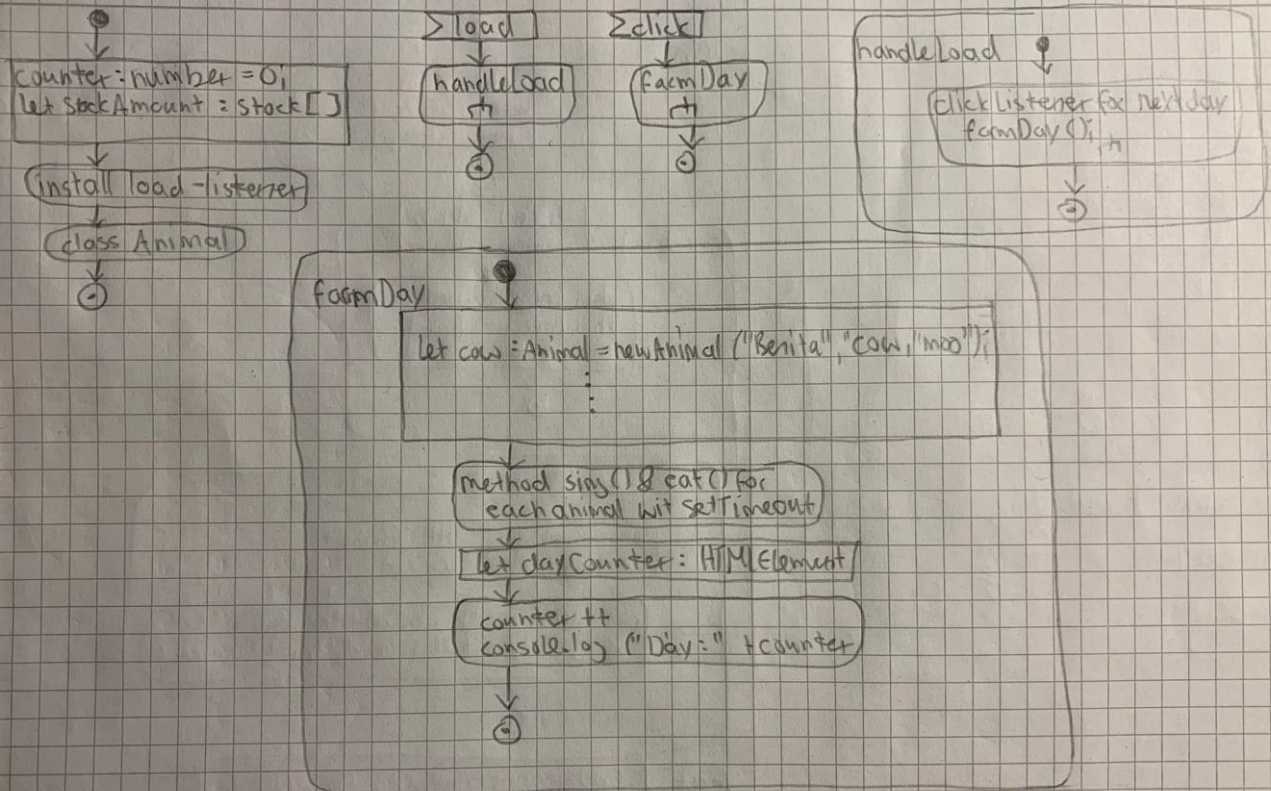 counter : number = 0;
let stockAmount : stock[]
install load-listener
class Animal
load
handleLoad
click
farmDay
handleLoad
clickListener for next day
farmDay();
farmDay
let cow : Animal = new Animal ("Benita", "cow, "moo");
method sing() & eat() for
each animal wit setTimeout
let dayCounter : HTMLElement
counter ++
console.log ("Day:" + counter